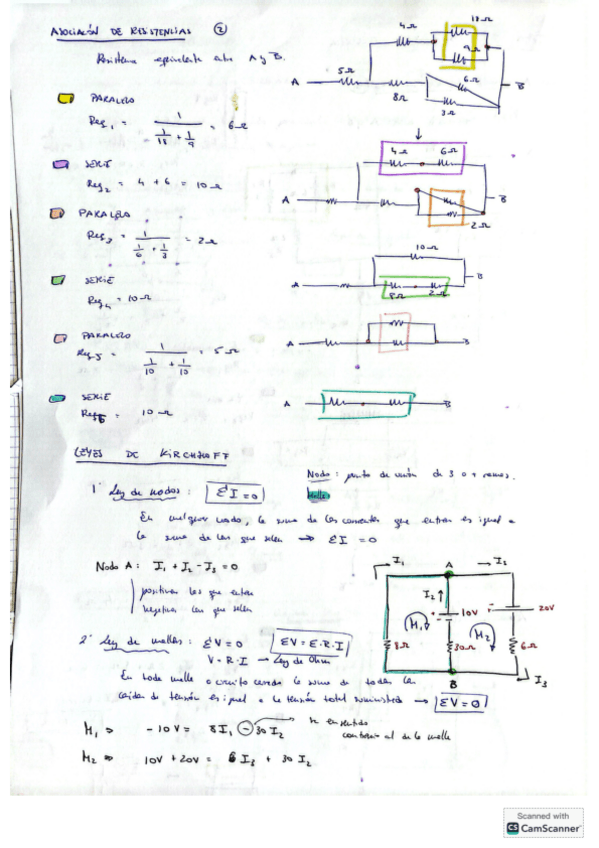 ASOCIACIÓN DE RESISTENCIAS ②
Resistencia equivalente entre A y B.
PARALELO
Req₁ = 1 / (1/18 + 1/9) = 6 Ω
SERIE
Req₂ = 4 + 6 = 10 Ω
PARALELO
Req₃ = 1 / (1/6 + 1/3) = 2 Ω
SERIE
Req₄ = 10 Ω
PARALELO
Req₅ = 1 / (1/10 + 1/10) = 5 Ω
SERIE
Req₆ = 10 Ω
A 5Ω 4Ω 18Ω 9Ω 8Ω 6Ω 3Ω B
A 4Ω 6Ω 2Ω B
A 10Ω 8Ω 2Ω B
A B
A B
LEYES DE KIRCHHOFF
Nodo: punto de unión de 3 o + ramas.
Malla
1ª Ley de nodos: ΣI = 0
En cualquier nodo, la suma de las corrientes que entran es igual a
la suma de las que salen → ΣI = 0
Nodo A: I₁ + I₂ - I₃ = 0
positivas las que entran
negativas las que salen
2ª Ley de mallas: ΣV = 0 ΣV = Σ·R·I
V = R·I → Ley de Ohm
En toda malla o circuito cerrado la suma de todas las
caídas de tensión es igual a la tensión total suministrada → ΣV = 0
M₁ ⇒ -10V = 8I₁ - 30I₂
va en sentido
contrario al de la malla
M₂ ⇒ 10V + 20V = 6I₃ + 30I₂
I₁ A I₃
I₂ 10V 20V
M₁ M₂
8Ω 30Ω 6Ω
B I₃
Scanned with
CS CamScanner